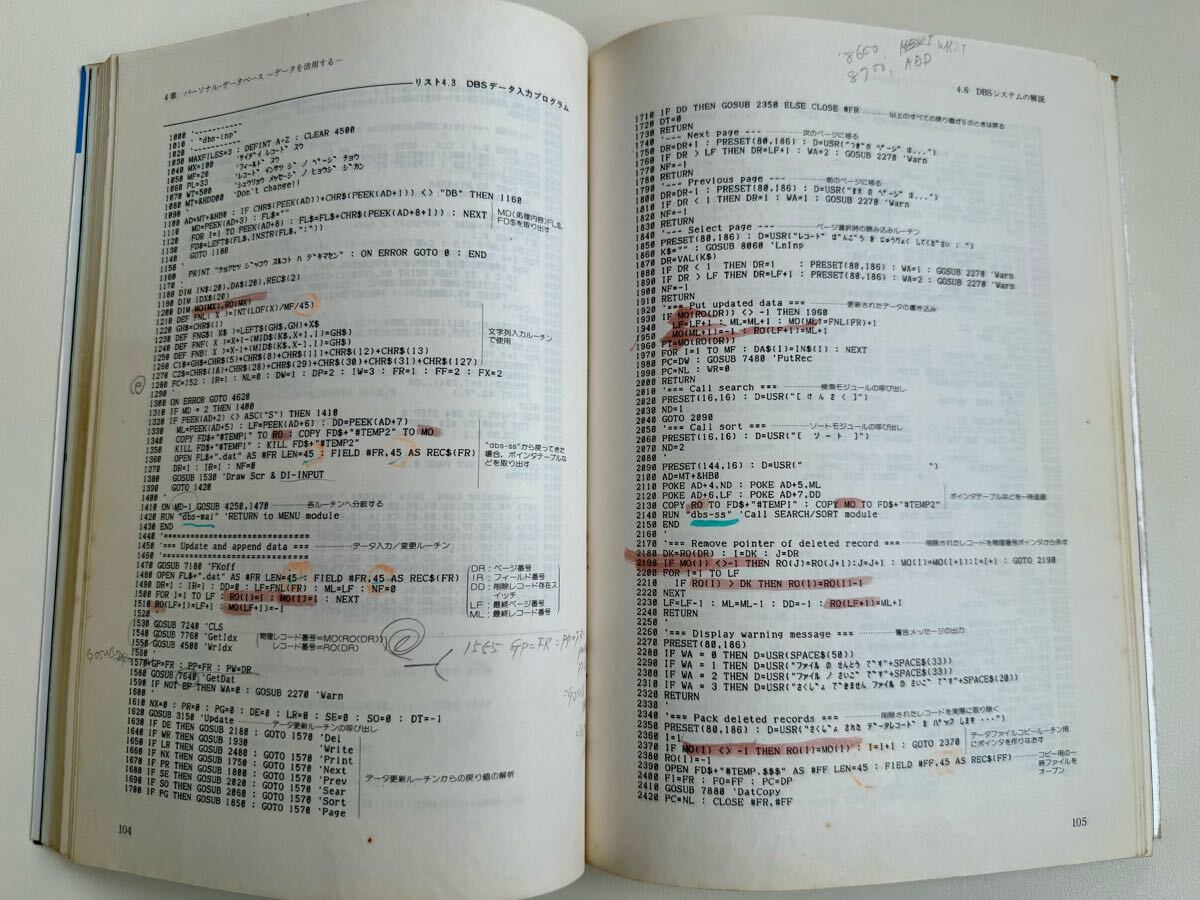 4章 パーソナル・データベース ―データを活用する―
リスト4.3 DBSデータ入力プログラム
1000 '----------
1010 ' "dbs-inp"
1020 '----------
1030 MAXFILES=3 : DEFINT A-Z : CLEAR 4500
1040 MX=100
1050 MF=20
1060 PL=33
1070 WT=500
1080 MT=&HDD00 'Don't change!!
1090 '
1100 AD=MT+&HB0 : IF CHR$(PEEK(AD))+CHR$(PEEK(AD+1)) <> "DB" THEN 1160
1110 MD=PEEK(AD+3) : FL$=""
1120 FOR I=1 TO PEEK(AD+8) : FL$=FL$+CHR$(PEEK(AD+8+I)) : NEXT
1130 FD$=LEFT$(FL$,INSTR(FL$,":"))
1140 GOTO 1180
MD(処理内容)FL$,
FD$を取り出す
1150 '
1160 PRINT "チョクセツ ジッコウ スルコト ハ デキマセン" : ON ERROR GOTO 0 : END
1170 '
1180 DIM IN$(20),DA$(20),REC$(2)
1190 DIM IDX$(20)
1200 DIM MO(MX),RO(MX)
1210 DEF FNL( X )=INT(LOF(X)/MF/45)
1220 GH$=CHR$(1)
1230 DEF FNG$( X$ )=LEFT$(GH$,GH)+X$
1240 DEF FNF( X )=X+1-(MID$(K$,X+1,1)=GH$)
1250 DEF FNB( X )=X-1+(MID$(K$,X-1,1)=GH$)
1260 C1$=GH$+CHR$(5)+CHR$(8)+CHR$(11)+CHR$(12)+CHR$(13)
1270 C2$=CHR$(18)+CHR$(28)+CHR$(29)+CHR$(30)+CHR$(31)+CHR$(127)
1280 FC=152 : IR=1 : NL=0 : DW=1 : DP=2 : IW=3 : FR=1 : FF=2 : FX=2
文字列入力ルーチン
で使用
1290 '
1300 ON ERROR GOTO 4620
1310 IF MD = 2 THEN 1400
1320 IF PEEK(AD+2) <> ASC("S") THEN 1410
1330 ML=PEEK(AD+5) : LF=PEEK(AD+6) : DD=PEEK(AD+7)
1340 COPY FD$+"#TEMP1" TO RO : COPY FD$+"#TEMP2" TO MO
1350 KILL FD$+"#TEMP1" : KILL FD$+"#TEMP2"
1360 OPEN FL$+".dat" AS #FR LEN=45 : FIELD #FR,45 AS REC$(FR)
1370 DR=1 : IR=1 : NF=0
1380 GOSUB 1530 'Draw Scr & DI-INPUT
1390 GOTO 1420
"dbs-ss"から戻ってきた
場合,ポインタテーブルな
どを取り出す
1400 '
1410 ON MD-1 GOSUB 4250,1470 ……各ルーチンへ分岐する
1420 RUN "dbs-mai" 'RETURN to MENU module
1430 END
1440 '===============================
1450 '=== Update and append data === ……データ入力/変更ルーチン
1460 '===============================
1470 GOSUB 7180 'FKoff
1480 OPEN FL$+".dat" AS #FR LEN=45 : FIELD #FR,45 AS REC$(FR)
1490 DR=1 : IR=1 : DD=0 : LF=FNL(FR) : ML=LF : NF=0
1500 FOR I=1 TO LF : RO(I)=I : MO(I)=I : NEXT
1510 RO(LF+1)=LF+1 : MO(LF+1)=-1
1520 '
DR:ページ番号
IR:フィールド番号
DD:削除レコード存在ス
イッチ
LF:最終ページ番号
ML:最終レコード番号
1530 GOSUB 7240 'CLS
1540 GOSUB 7760 'GetIdx
1550 GOSUB 4500 'WrIdx
物理レコード番号=MO(RO(DR))
レコード番号=RO(DR)
1565 GP=FR : PP=
1560 '
1570 GP=FR : PP=FR : PW=DR
1580 GOSUB 7640 'GetDat
1590 IF NOT EP THEN WA=0 : GOSUB 2270 'Warn
1600 '
1610 NX=0 : PR=0 : PG=0 : DE=0 : LR=0 : SE=0 : SO=0 : DT=-1
1620 GOSUB 3150 'Update ……データ更新ルーチンの呼び出し
1630 IF DE THEN GOSUB 2180 : GOTO 1570 'Del
1640 IF WR THEN GOSUB 1930 'Write
1650 IF LR THEN GOSUB 2480 : GOTO 1570 'Print
1660 IF NX THEN GOSUB 1750 : GOTO 1570 'Next
1670 IF PR THEN GOSUB 1800 : GOTO 1570 'Prev
1680 IF SE THEN GOSUB 2020 : GOTO 1570 'Sear
1690 IF SO THEN GOSUB 2060 : GOTO 1570 'Sort
1700 IF PG THEN GOSUB 1850 : GOTO 1570 'Page
データ更新ルーチンからの戻り値の解析
104
8700, ADD
4.6 DBSシステムの解説
1710 IF DD THEN GOSUB 2350 ELSE CLOSE #FR ……以上のすべての戻り値が0のときは戻る
1720 DT=0
1730 RETURN
1740 '--- Next page --- ……次のページに移る
1750 DR=DR+1 : PRESET(80,186) : D=USR("つぎの ページ は...")
1760 IF DR > LF THEN DR=LF+1 : WA=2 : GOSUB 2270 'Warn
1770 NF=-1
1780 RETURN
1790 '--- Previous page --- ……前のページに移る
1800 DR=DR-1 : PRESET(80,186) : D=USR("まえ の ページ は...")
1810 IF DR < 1 THEN DR=1 : WA=1 : GOSUB 2270 'Warn
1820 NF=-1
1830 RETURN
1840 '--- Select page --- ……ページ選択時の読み込みルーチン
1850 PRESET(80,186) : D=USR("レコード ばんごう を にゅうりょく してください : ")
1860 K$="" : GOSUB 8060 'LnInp
1870 DR=VAL(K$)
1880 IF DR < 1 THEN DR=1 : PRESET(80,186) : WA=1 : GOSUB 2270 'Warn
1890 IF DR > LF THEN DR=LF+1 : PRESET(80,186) : WA=2 : GOSUB 2270 'Warn
1900 NF=-1
1910 RETURN
1920 '=== Put updated data === ……更新されたデータの書き込み
1930 IF MO(RO(DR)) <> -1 THEN 1960
1940 LF=LF+1 : ML=ML+1 : MO(ML)=FNL(FR)+1
1950 MO(ML+1)=-1 : RO(LF+1)=ML+1
1960 PT=MO(RO(DR))
1970 FOR I=1 TO MF : DA$(I)=IN$(I) : NEXT
1980 PC=DW : GOSUB 7480 'PutRec
1990 PC=NL : WR=0
2000 RETURN
2010 '=== Call search === ……検索モジュールの呼び出し
2020 PRESET(16,16) : D=USR("[ けんさく ]")
2030 ND=1
2040 GOTO 2090
2050 '=== Call sort === ……ソートモジュールの呼び出し
2060 PRESET(16,16) : D=USR("[ ソート ]")
2070 ND=2
2080 '
2090 PRESET(144,16) : D=USR(" ")
2100 AD=MT+&HB0
2110 POKE AD+4,ND : POKE AD+5,ML
2120 POKE AD+6,LF : POKE AD+7,DD
2130 COPY RO TO FD$+"#TEMP1" : COPY MO TO FD$+"#TEMP2"
2140 RUN "dbs-ss" 'Call SEARCH/SORT module
2150 END
ポインタテーブルなどを一時退避
2160 '
2170 '=== Remove pointer of deleted record === ……削除されたレコードを物理番号ポインタから外す
2180 DK=RO(DR) : I=DK : J=DR
2190 IF MO(I) <>-1 THEN RO(J)=RO(J+1):J=J+1 : MO(I)=MO(I+1):I=I+1 : GOTO 2190
2200 FOR I=1 TO LF
2210 IF RO(I) > DK THEN RO(I)=RO(I)-1
2220 NEXT
2230 LF=LF-1 : ML=ML-1 : DD=-1 : RO(LF+1)=ML+1
2240 RETURN
2250 '
2260 '=== Display warning message === ……警告メッセージの出力
2270 PRESET(80,186)
2280 IF WA = 0 THEN D=USR(SPACE$(50))
2290 IF WA = 1 THEN D=USR("ファイル の せんとう です"+SPACE$(33))
2300 IF WA = 2 THEN D=USR("ファイル ノ さいご です"+SPACE$(33))
2310 IF WA = 3 THEN D=USR("さくじょ できません ファイル の さいご です"+SPACE$(20))
2320 RETURN
2330 '
2340 '=== Pack deleted records === ……削除されたレコードを実際に取り除く
2350 PRESET(80,186) : D=USR("さくじょ された データレコード を パック します ･･･")
2360 I=1
2370 IF MO(I) <> -1 THEN RO(I)=MO(I) : I=I+1 : GOTO 2370
2380 RO(I)=-1
データファイルコピールーチン用
にポインタを作りなおす
2390 OPEN FD$+"#TEMP.$$$" AS #FF LEN=45 : FIELD #FF,45 AS REC$(FF) ……コピー用の一
時ファイルを
オープン
2400 FI=FR : FO=FF : PC=DP
2410 GOSUB 7880 'DatCopy
2420 PC=NL : CLOSE #FR,#FF
105